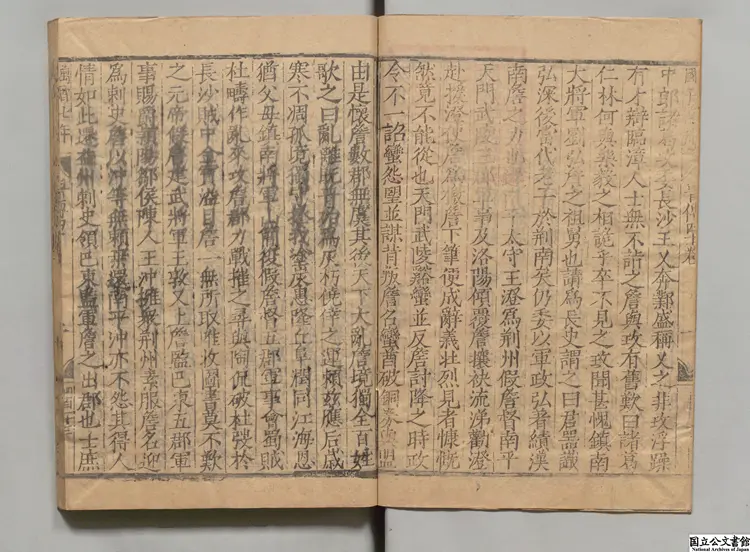 中郎諸長沙王乂奔鄴盛稱乂之非玫浮躁
有才辯臨漳人士無不詣之詹與玫有舊歎曰諸葛
仁林何與樂毅之相詭乎卒不見之玫聞甚愧鎮南
大將軍劉弘詹之祖舅也請爲長史謂之曰君器識
弘深後當代老子於荆南矣仍委以軍政弘著績漢
南詹之力太守王澄爲荆州假詹督南平
天門武陵軍事及洛陽傾覆詹攘袂流涕勸澄
赴援澄使詹爲檄詹下筆便成辭義壯烈見者慷慨
然竟不能從也天門武陵谿蠻並反詹討降之時政
令不一諸蠻怨望並謀背叛詹召蠻酋破銅券與盟
由是懷詹數郡無虞其後天下大亂詹境獨全百姓
歌之曰亂離既普殆爲灰朽僥倖之運賴兹應后歲
寒不凋孤境獨守拯我塗炭惠隆丘阜潤同江海恩
猶父母鎮南將軍山簡復假詹督五郡軍事會蜀賊
杜疇作亂來攻詹郡力戰摧之尋與陶侃破杜弢於
長沙賊中金寶溢目詹一無所取唯收圖書莫不歎
之元帝假詹建武將軍王敦又上詹監巴東五郡軍
事賜爵潁陽鄉侯陳人王沖擁衆荆州素服詹名迎
爲刺史詹以沖等無賴棄還南平沖亦不怨其得人
情如此遷益州刺史領巴東監軍詹之出郡也士庶
国立公文書館
National Archives of Japan